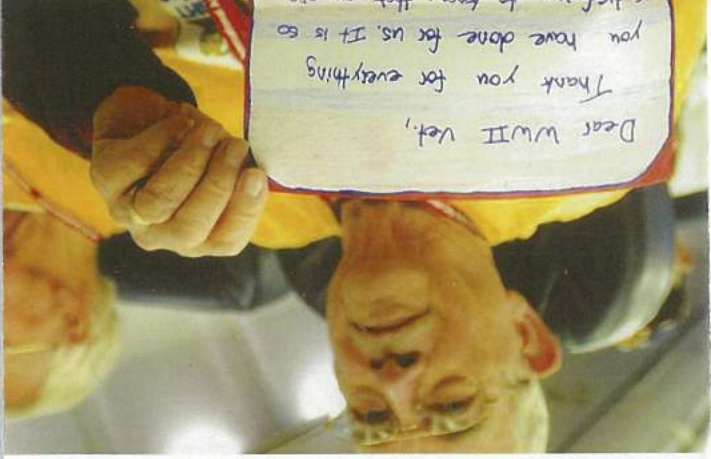 Dear WWII Vet,
Thank you for everything
you have done for us. It is so